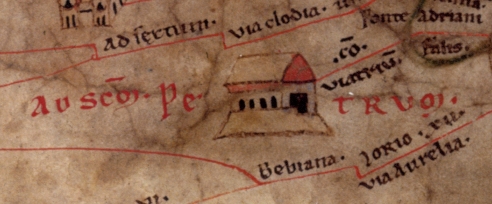 Ad sextum.
Via clodia. II
Ponte adriani
falis.
.cō.
Viatriū.
Ad scōm. Pe TRVM.
Bebiana.
lorio .XII.
Via Aurelia.
VII.